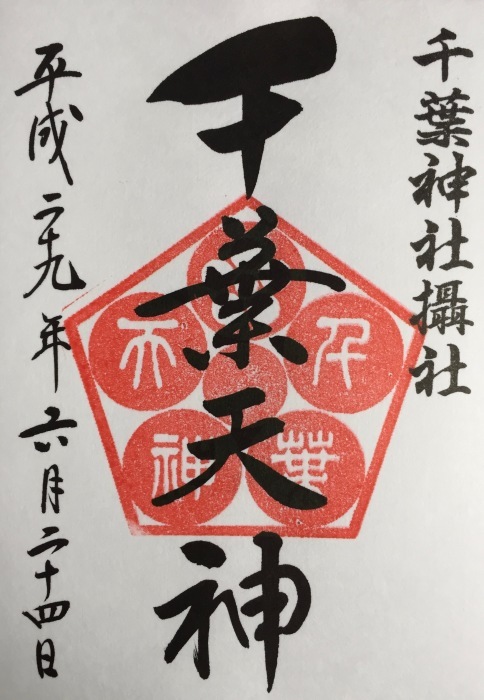 千葉神社攝社
千葉天神
平成二十九年六月二十四日
千葉天神